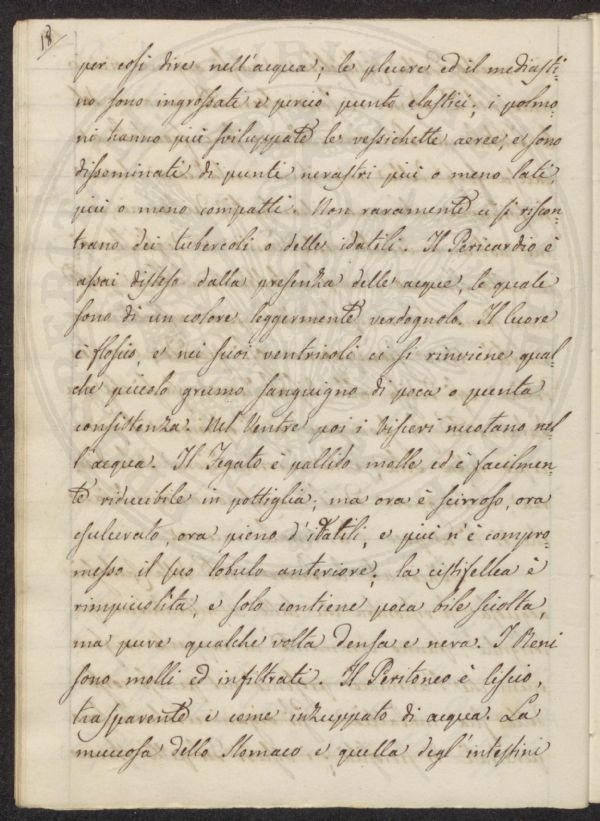 18
per cosi dire nell'acqua; le pleure ed il mediasti-
no sono ingrossate e perciò punto elastici; i polmo-
ni hanno più sviluppate le vessichette aeree, e sono
disseminati di punti nerastri più o meno lati,
più o meno compatti. Non raramente ci si riscon-
trano dei tubercoli o delle idatili. Il Pericardio è
assai disteso dalla presenza delle acque, le quale
sono di un colore leggermente verdognolo. Il Cuore
è floscio, e nei suoi ventricoli ci si rinviene qual-
che piccolo grumo sanguigno di poca o punta
consistenza. Nel Ventre poi i Visceri nuotano nel-
l'acqua. Il Fegato è pallido molle ed è facilmen-
te riducibile in pottiglia; ma ora è scirroso, ora
esulcerato, ora pieno d'idatili, e più n'è compro-
messo il suo lobulo anteriore; la cistifellea è
rimpiccolita, e solo contiene poca bile sciolta,
ma pure qualche volta densa e nera. I Reni
sono molli ed infiltrati. Il Peritoneo è liscio,
trasparente e come inzuppato di acqua. La
muccosa dello Stomaco e quella degl'intestini